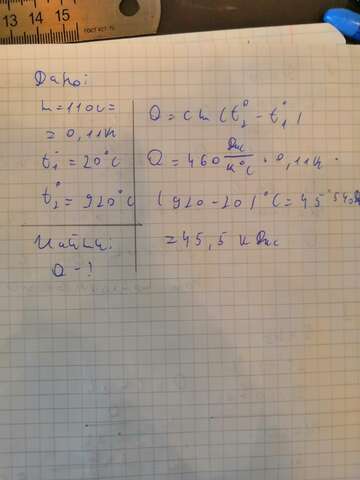 13 14 15
ГОСТ 427-75
Дано:
m=110г=
=0,11кг
t₁°=20°C
t₂°=920°C
Найти:
Q-?
Q=cm(t₂°-t₁°)
Q=460 Дж/кг°C · 0,11кг ·
(920-20)°C=45540Дж
=45,5 кДж